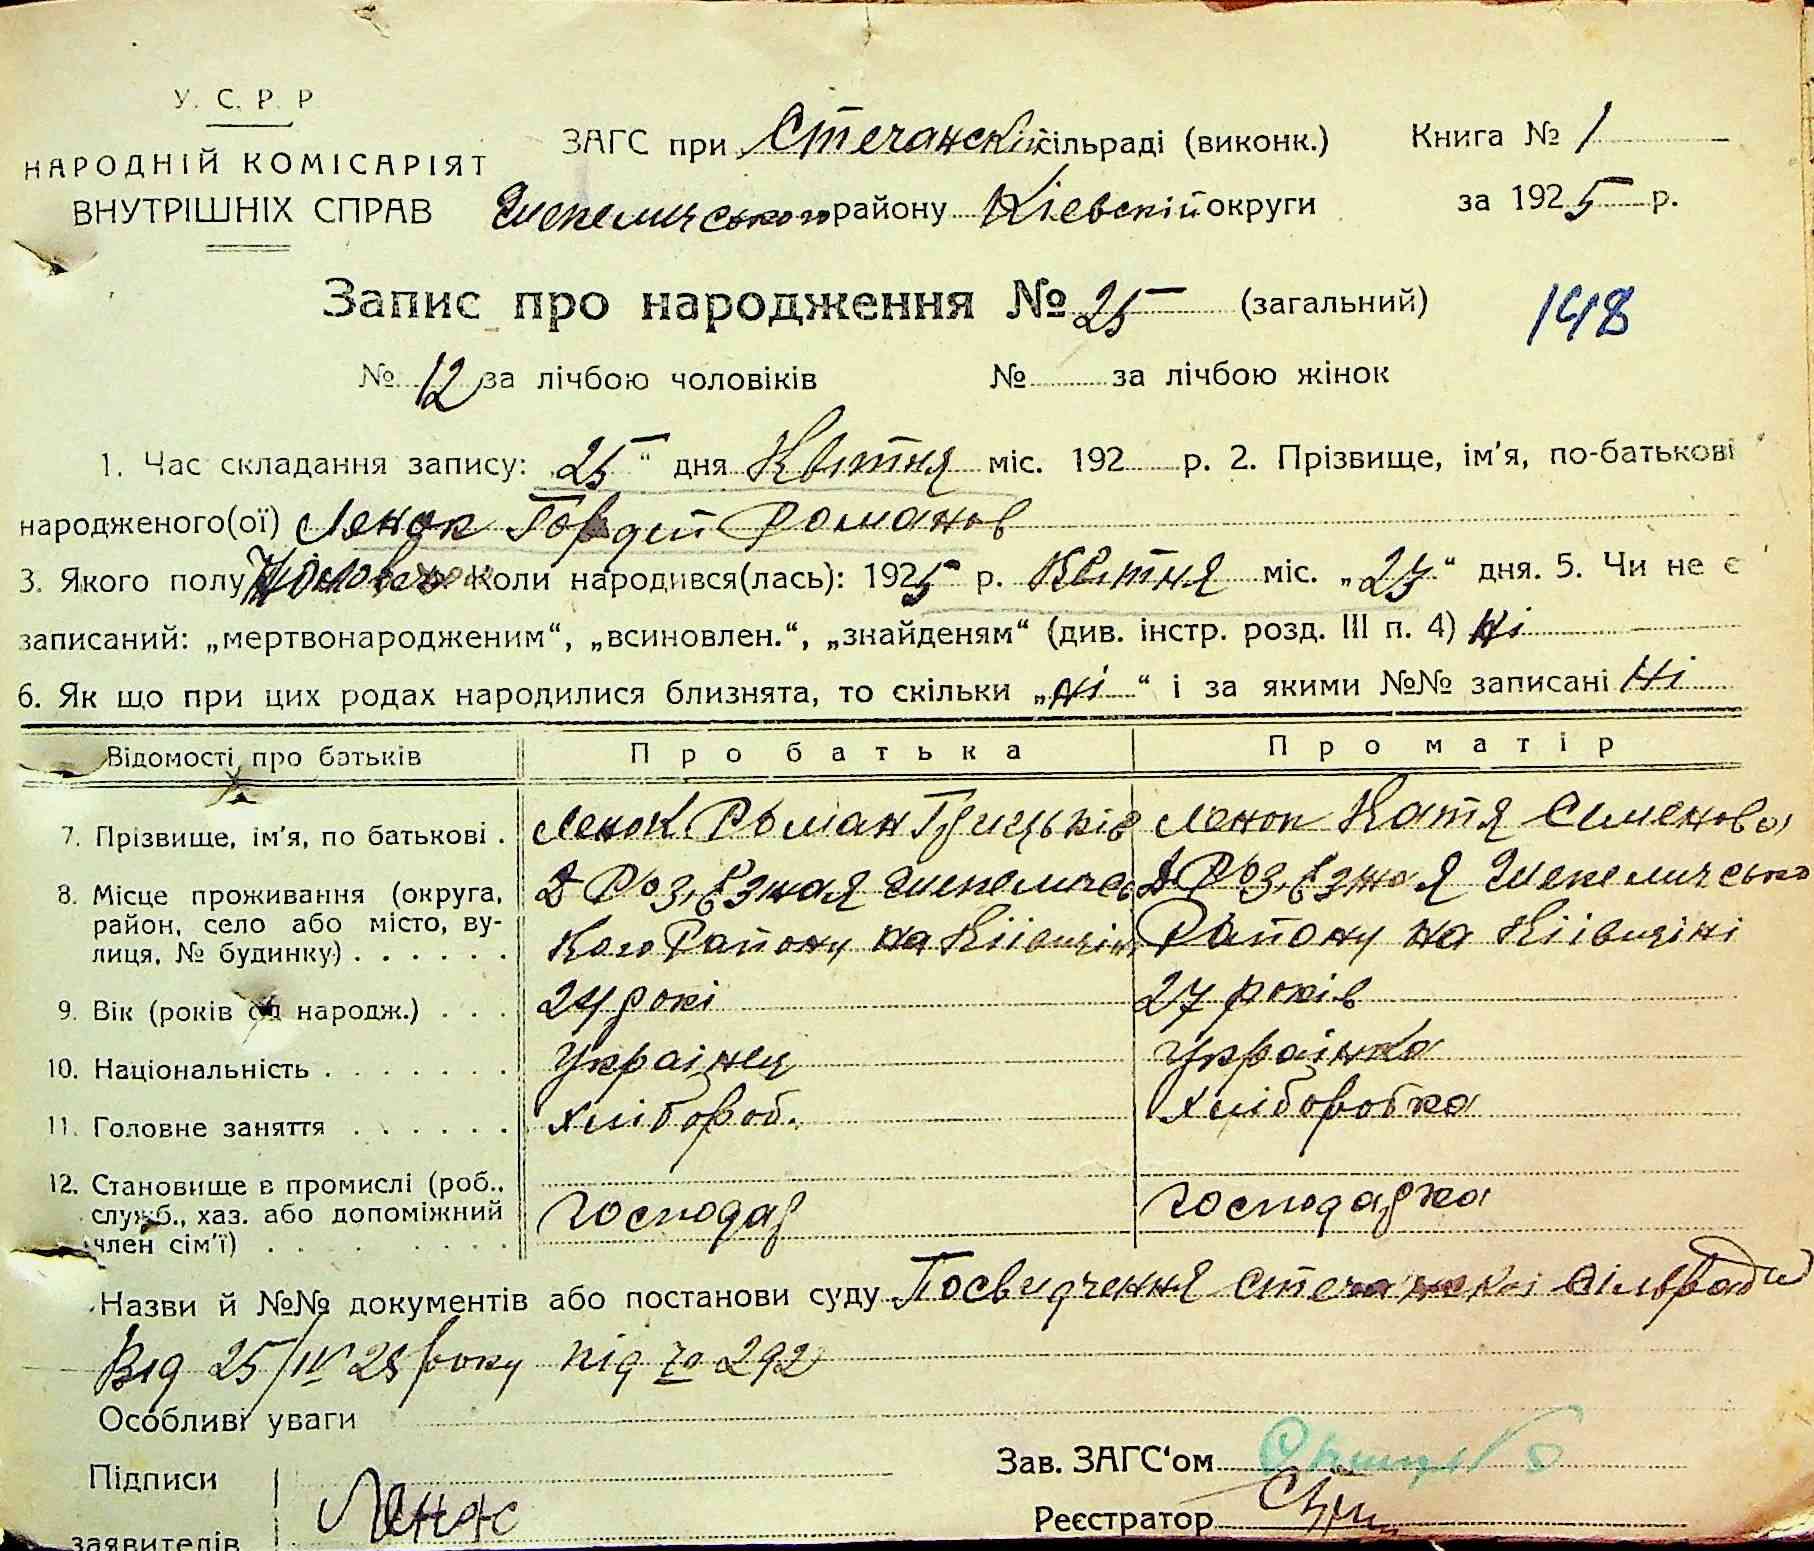 У. С. Р. Р
НАРОДНІЙ КОМІСАРІЯТ
ВНУТРІШНІХ СПРАВ
ЗАГС при Стечанскій сільраді (виконк.) Книга № 1
Шепеличського району Кіевскій округи за 1925 р.
Запис про народження № 25 (загальний) 148
№ 12 за лічбою чоловіків № за лічбою жінок
1. Час складання запису: 25 " дня Квітня міс. 192 р. 2. Прізвище, ім'я, по-батькові
народженого(ої) Ленок Гордей Романов
3. Якого полу Коли народився(лась): 1925 р. Квітня міс. „23" дня. 5. Чи не є
записаний: „мертвонародженим", „всиновлен.", „знайденям" (див. інстр. розд. III п. 4) Ні
6. Як що при цих родах народилися близнята, то скільки „ні" і за якими №№ записані Ні
Відомості про батьків Про батька Про матір
7. Прізвище, ім'я, по батькові . Ленок Роман Грицьків Ленок Катя Семенова
8. Місце проживання (округа, район, село або місто, вулиця, № будинку) . . . . . .
Д Розъѣзжая Шепеличсь
кого Району на Кіівщіні
Д Розъѣзжая Шепеличсько
Району на Кіівщіні
9. Вік (років од народж.) . . . 24 рокі 27 років
10. Національність . . . . . . . Украінец Украінка
11. Головне заняття . . . . . . Хлібороб. Хліборобка
12. Становище в промислі (роб.,
служб., хаз. або допоміжний
член сім'ї) . . . . . . . . Господар Господарка
Назви й №№ документів або постанови суду Посвидчення Стечанскоі Сільради
Від 25/IV 25 року під № 292
Особливі уваги
Підписи Зав. ЗАГС'ом
заявителів Ленок Реєстратор